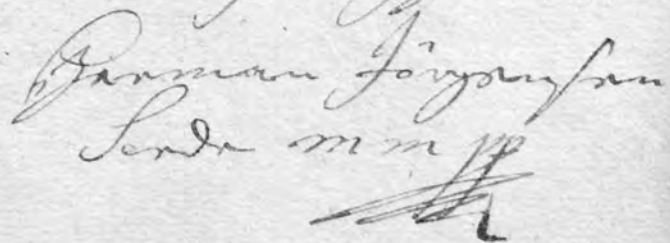 Herman Jörgensen
Serde mm pp